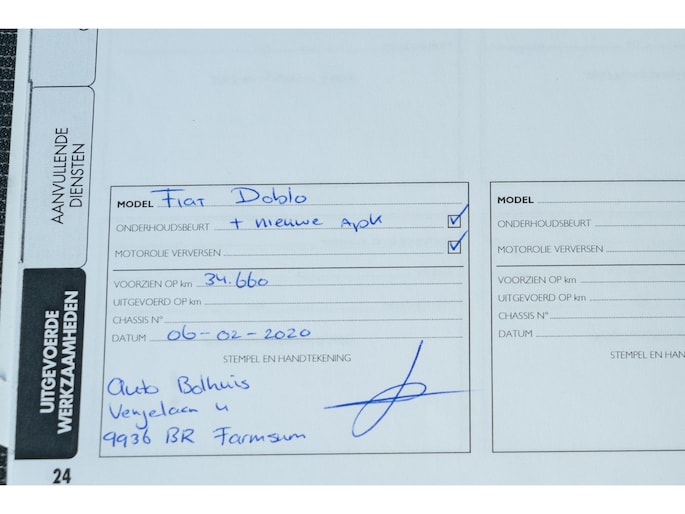 AANVULLENDE
DIENSTEN
UITGEVOERDE
WERKZAAMHEDEN
24
MODEL Fiat Doblo
ONDERHOUDSBEURT + nieuwe apk
MOTOROLIE VERVERSEN
VOORZIEN OP km 34.660
UITGEVOERD OP km
CHASSIS N°
DATUM 06-02-2020
STEMPEL EN HANDTEKENING
Auto Bolhuis
9936 BR Farmsum
MODEL
ONDERHOUDSBEURT
MOTOROLIE VERVERSEN
VOORZIEN OP km
UITGEVOERD OP km
CHASSIS N°
DATUM
STEMPEL EN HAN